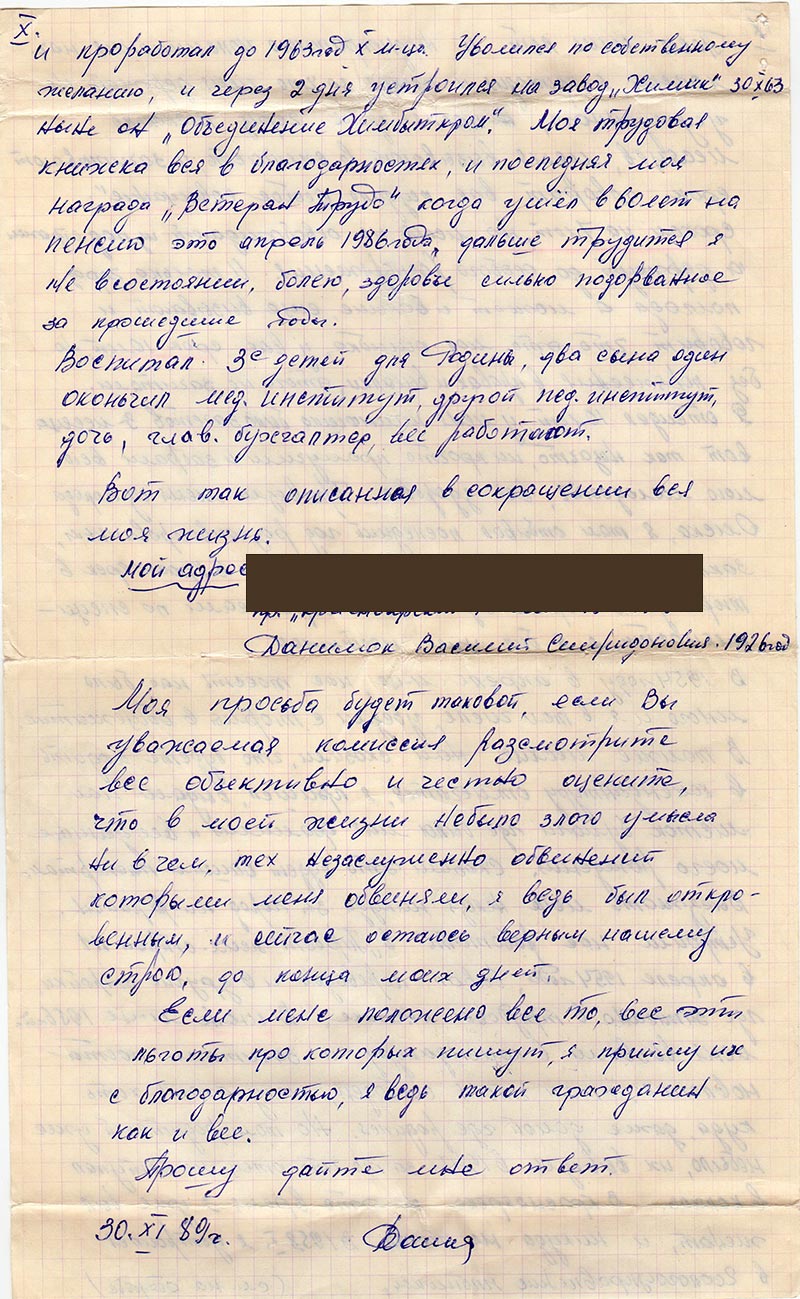 X.
и проработал до 1963год X м-ца. Уволился по собственному
желанию, и через 2 дня устроился на завод „Химик" 30 XI 63
ныне он „Объединение Химбытпром". Моя трудовая
книжка вся в благодарностях, и последняя моя
награда „Ветеран Трудо" когда ушёл в 60 лет на
пенсию это апрель 1986 года, дальше трудится я
не всостоянии, болею, здоровье сильно подорванное
за прошедшие годы.
Воспитал 3е детей для Родины, два сына один
окончил мед. институт, другой пед. институт,
дочь, глав. бухгалтер, все работают.
Вот так описанная в сокращении вся
моя жизнь.
Мой адрес
пр „Красноярский
Данилюк Василий Спиридонович. 1926 год
Моя просьба будет таковой, если Вы
уважаемая комиссия разсмотрите
все объективно и честно оцените,
что в моей жизни небыло злого умысла
ни в чем, тех незаслуженно обвинений
которыми меня обвиняли, я ведь был откро-
венным, и сейчас остаюсь верным нашему
строю, до конца моих дней.
Если мене положено все то, все эти
льготы про которых пишут, я прийму их
с благодарностью, я ведь такой гражданин
как и все.
Прошу дайте мне ответ.
30. XI 89г.